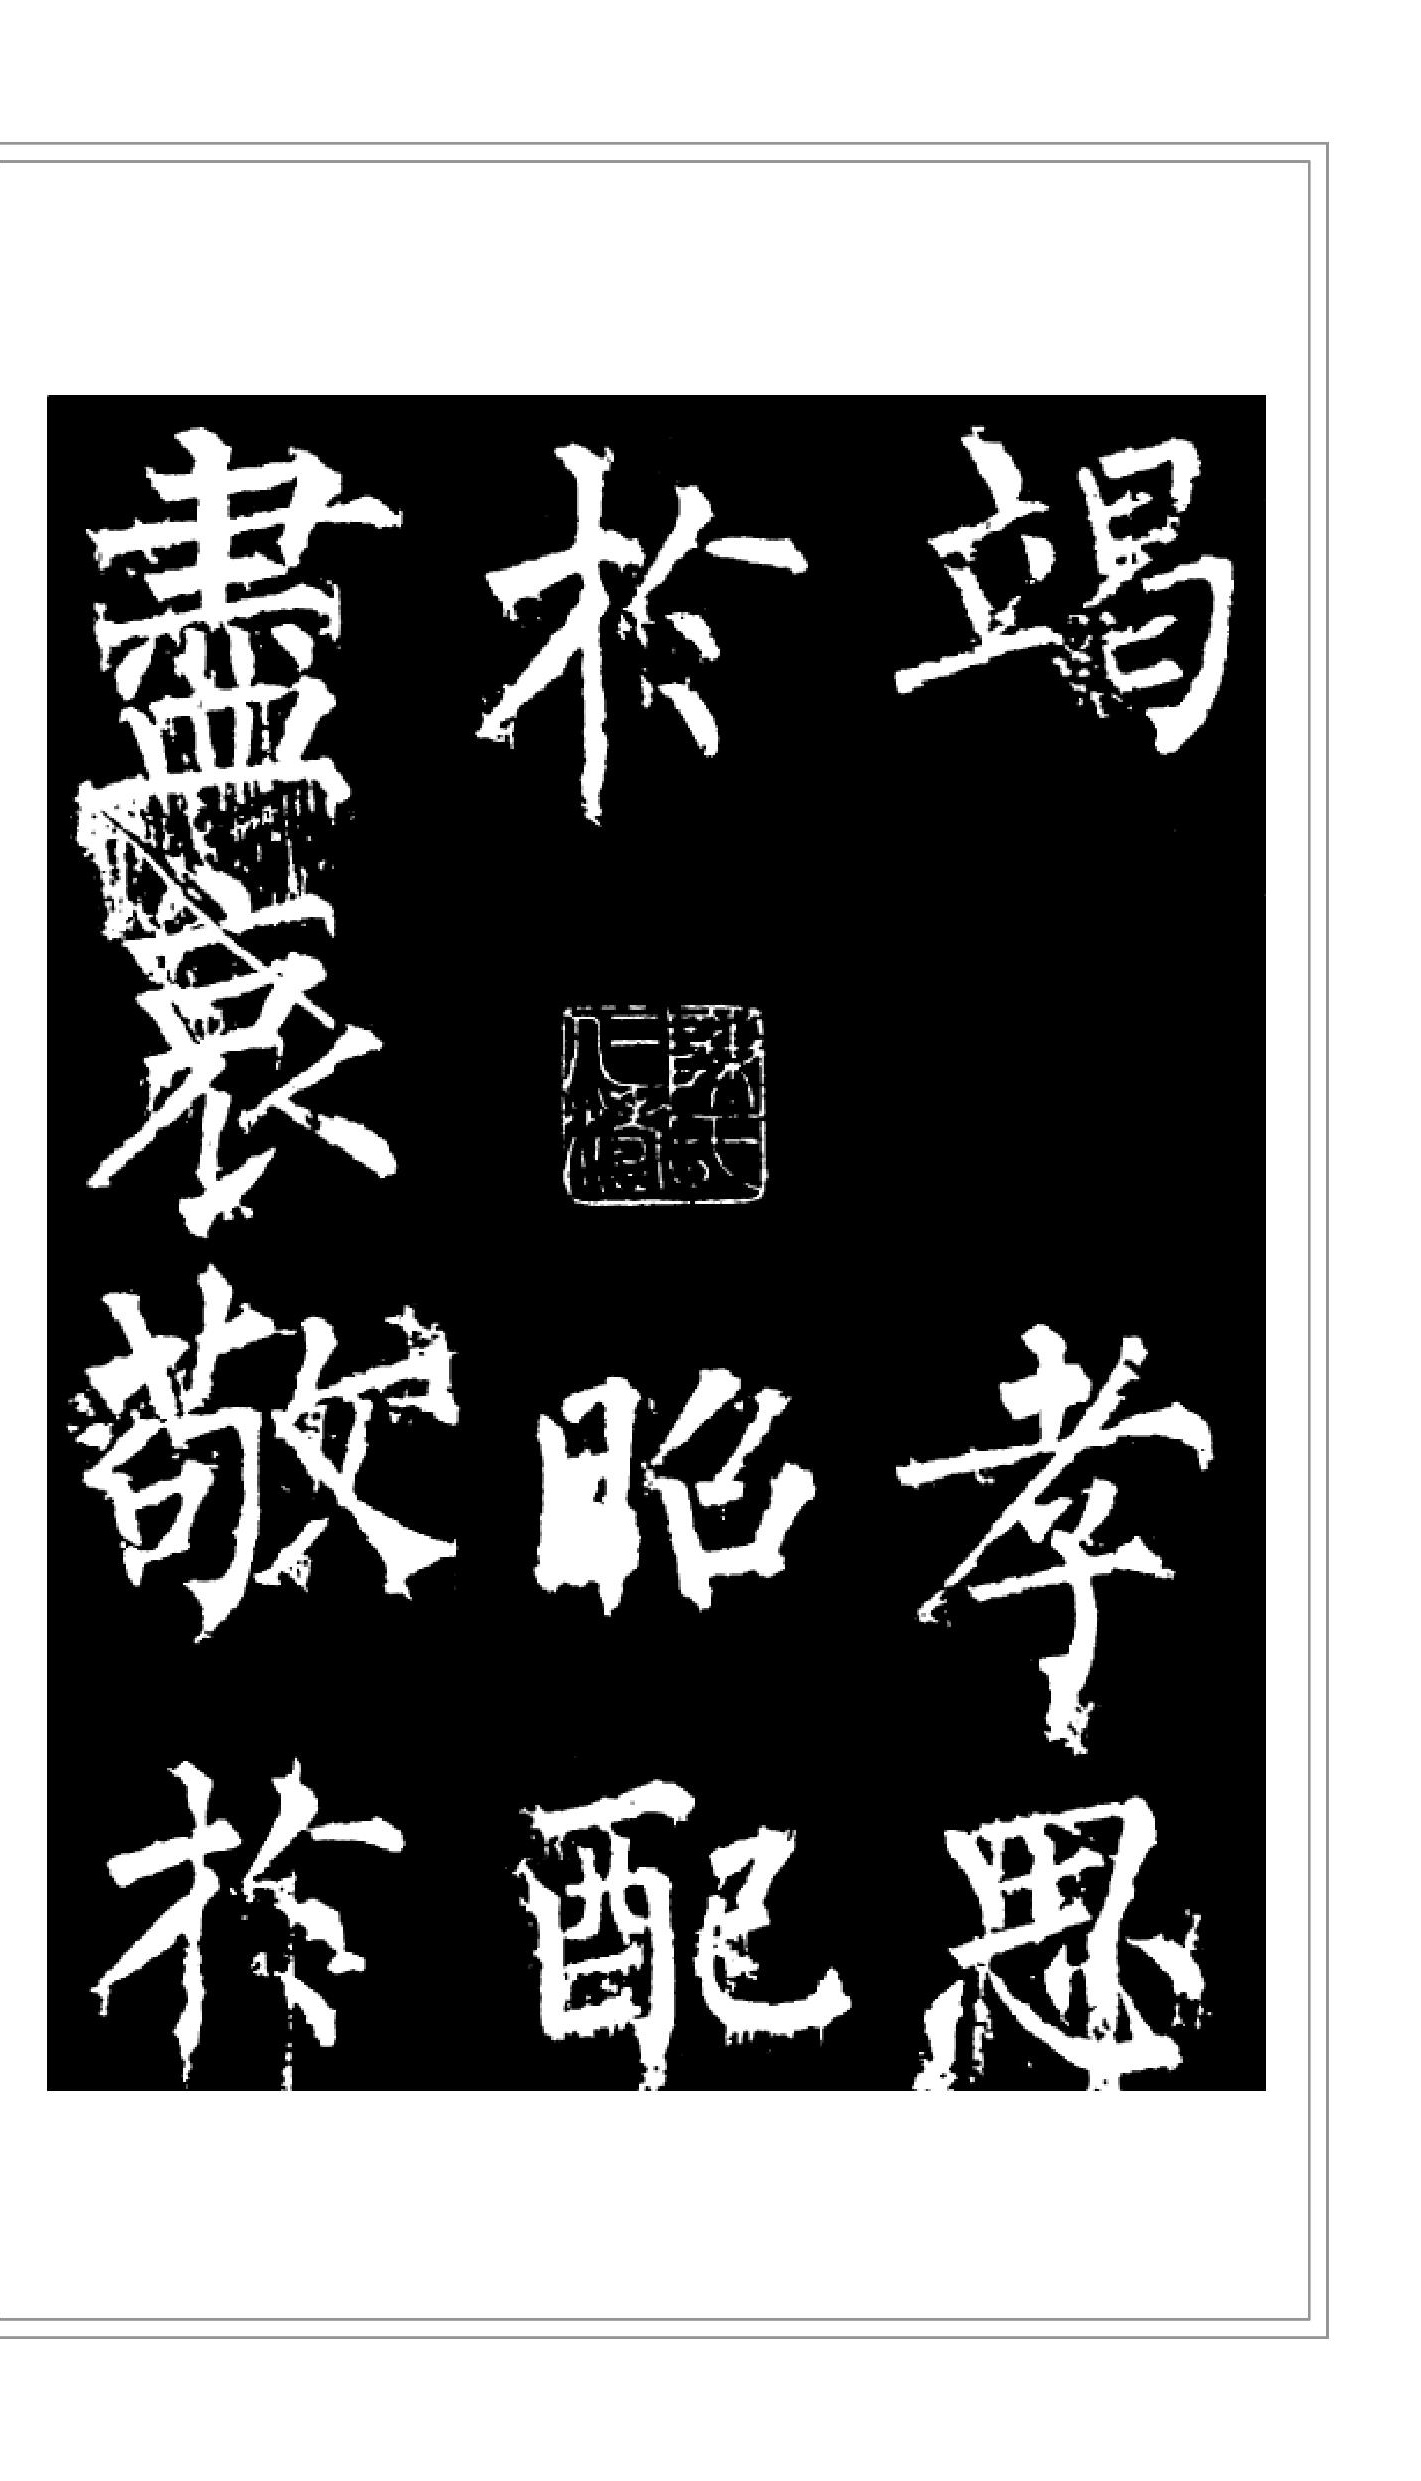 竭孝思
於昭配
盡哀敬於